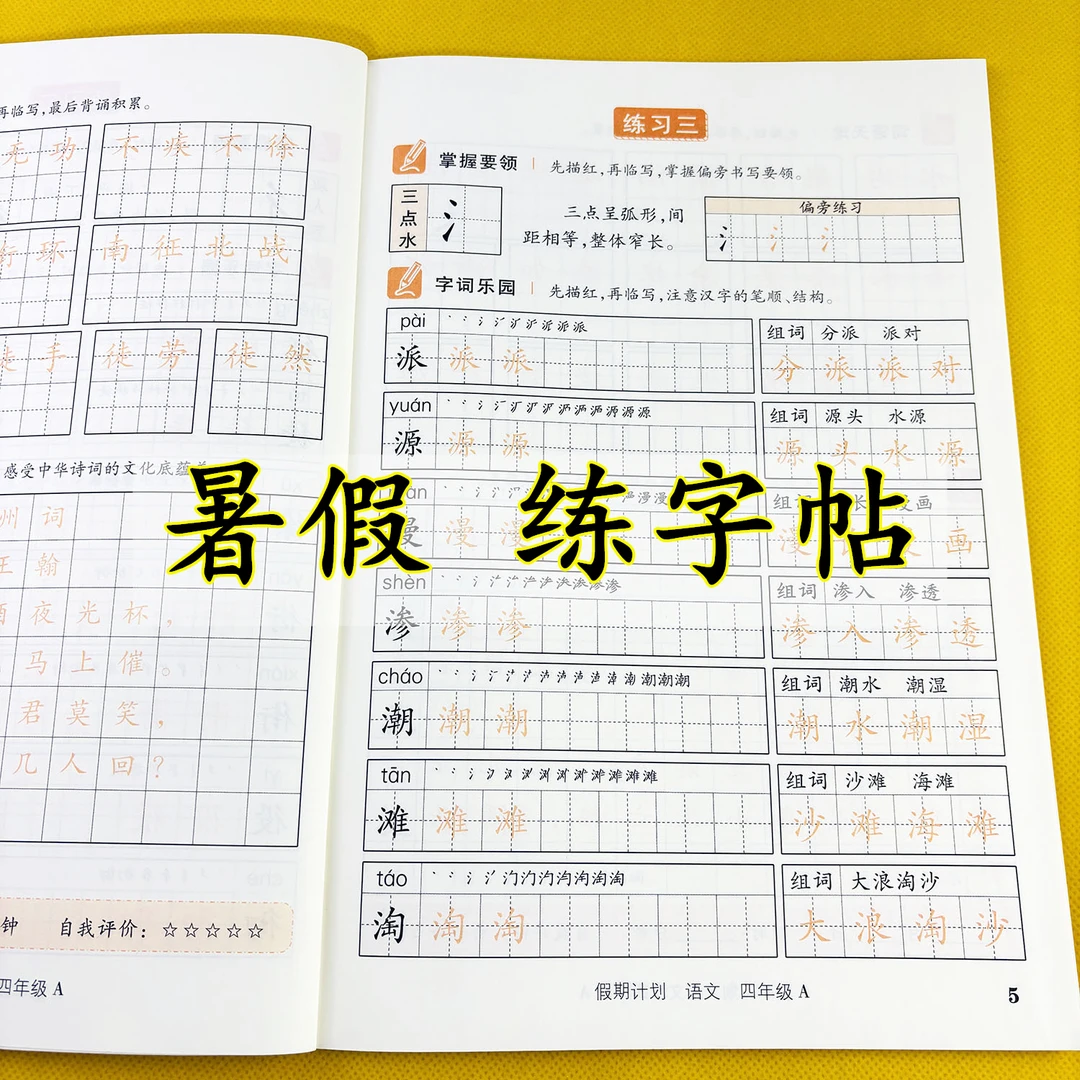 再临写，最后背诵积累。
无功
不疾不徐
衍环
南征北战
徒手
徒劳
徒然
感受中华诗词的文化底蕴
州词
王翰
夜光杯，
马上催。
君莫笑，
几人回？
钟 自我评价：☆☆☆☆☆
四年级 A
练习三
掌握要领 先描红，再临写，掌握偏旁书写要领。
三点水 氵
三点呈弧形，间
距相等，整体窄长。
偏旁练习
氵 氵 氵
字词乐园 先描红，再临写，注意汉字的笔顺、结构。
pài
派 派 派
组词 分派 派对
分派派对
yuán
源 源 源
组词 源头 水源
源头水源
暑假 练字帖
漫 漫 漫
组词 画
漫 画
shèn
渗 渗 渗
组词 渗入 渗透
渗入渗透
cháo
潮 潮 潮
组词 潮水 潮湿
潮水潮湿
tān
滩 滩 滩
组词 沙滩 海滩
沙滩海滩
táo
淘 淘 淘
组词 大浪淘沙
大浪淘沙
假期计划 语文 四年级 A
5